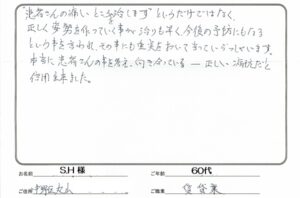 "患者さんの痛いところ治します"というだけではなく、
正しく姿勢を作っていく事が治りも早く今後の予防にもなる
という事を言われ、その事にも重点をおいて言っていらっしゃいます。
本当に患者さんの事を考え、向き合っている — 正しい治療だと
信用出来ました。
お名前 S.H 様 ご年齢 60代
ご住所 中野区 ご職業 賃貸業